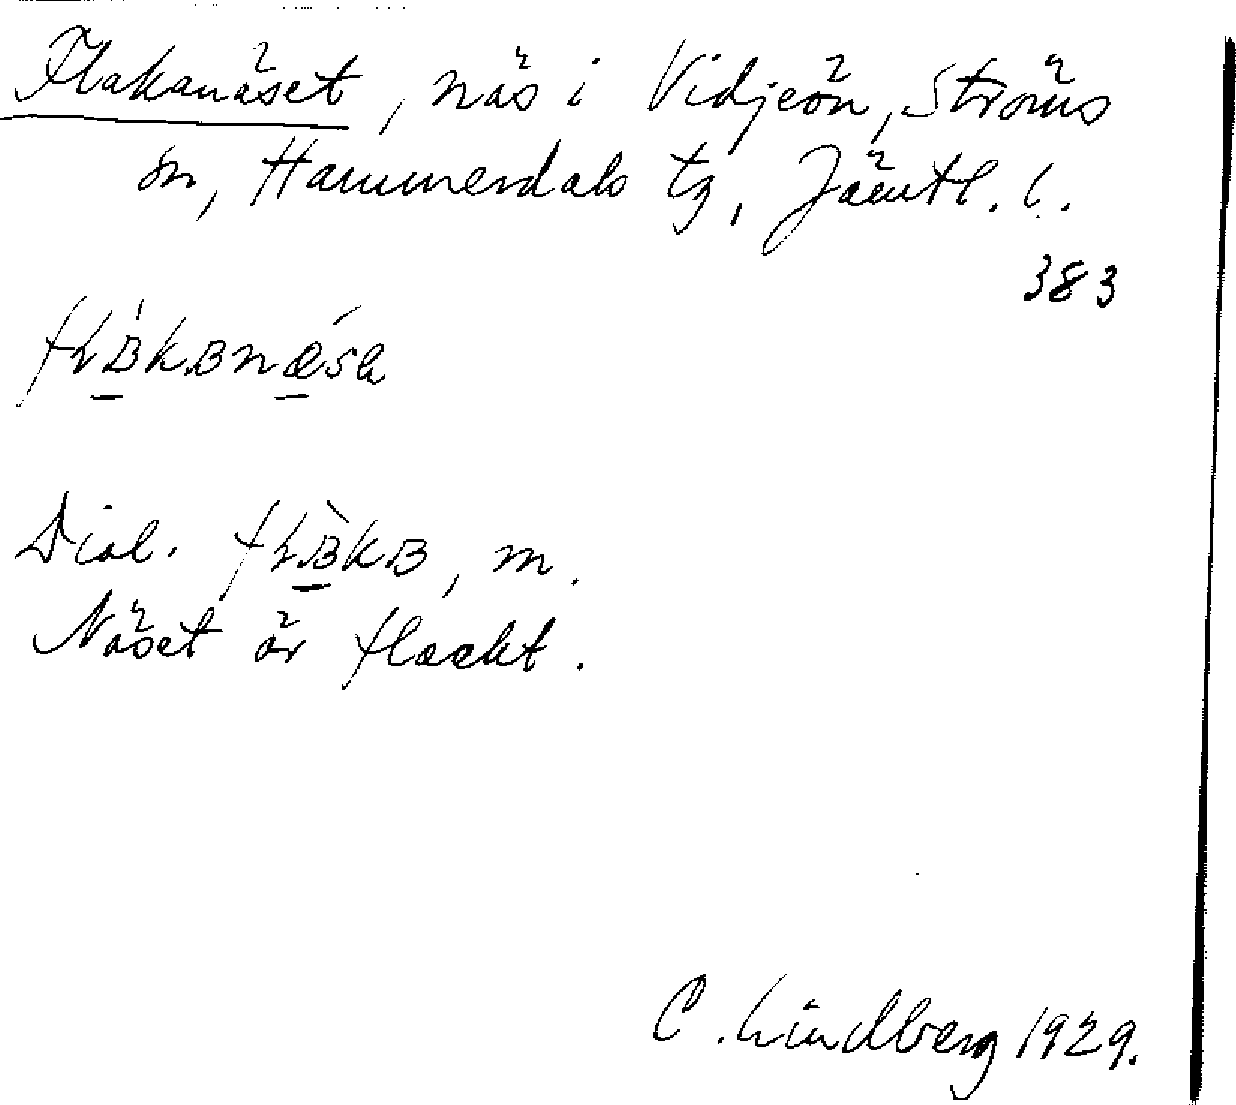 Flakanäset, näs i Vidjeön, Ströms
sn, Hammerdals tg, Jämtl. l.
383
Dial. , m.
Näset är flackt.
C. Lindberg 1929.